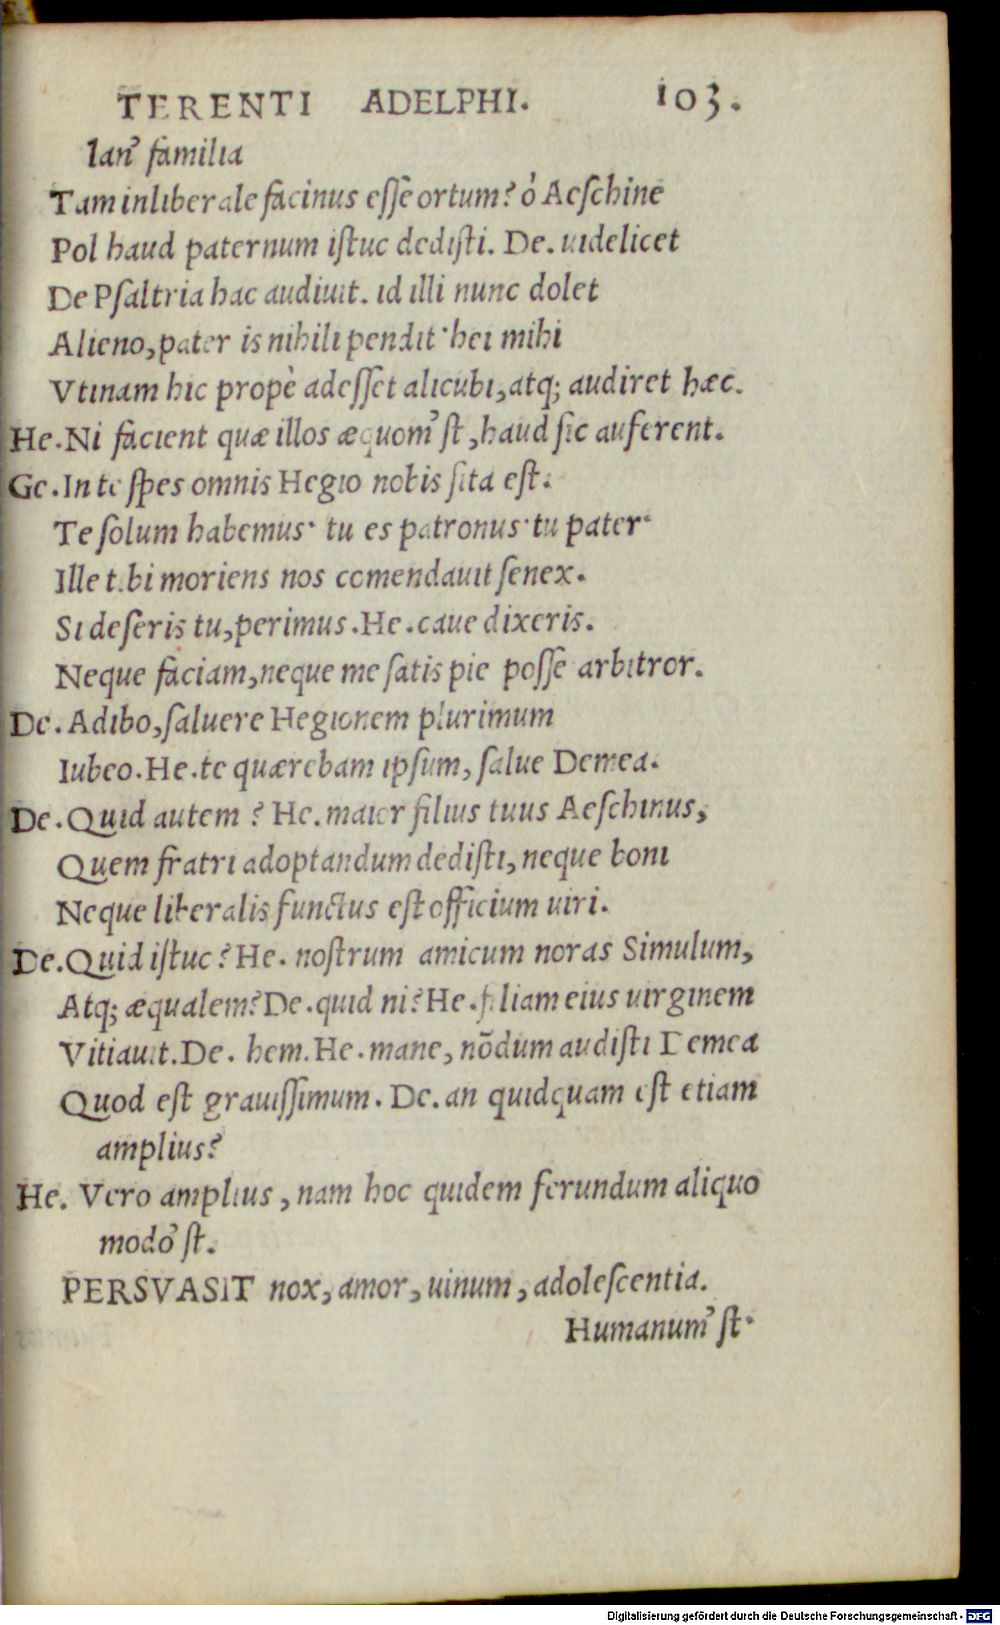 TERENTI ADELPHI. 103.
Ian' familia
Tam inliberale facinus esse ortum? ò Aeschine
Pol haud paternum istuc dedisti. De. uidelicet
De Psaltria hac audiuit. id illi nunc dolet
Alieno, pater is nihili pendit· hei mihi
Vtinam hic propè adesset alicubi, atq; audiret hæc.
He. Ni facient quæ illos æquom' st, haud sic auferent.
Ge. In te spes omnis Hegio nobis sita est.
Te solum habemus· tu es patronus· tu pater·
Ille tibi moriens nos comendauit senex.
Si deseris tu, perimus. He. caue dixeris.
Neque faciam, neque me satis pie posse arbitror.
De. Adibo, saluere Hegionem plurimum
Iubeo. He. te quærebam ipsum, salue Demea.
De. Quid autem? He. maior filius tuus Aeschinus,
Quem fratri adoptandum dedisti, neque boni
Neque liberalis functus est officium uiri.
De. Quid istuc? He. nostrum amicum noras Simulum,
Atq; æqualem? De. quid ni? He. filiam eius uirginem
Vitiauit. De. hem. He. mane, nōdum audisti Demea
Quod est grauissimum. De. an quidquam est etiam
amplius?
He. Vero amplius, nam hoc quidem ferundum aliquo
modo' st.
PERSVASIT nox, amor, uinum, adolescentia.
Humanum' st·
Digitalisierung gefördert durch die Deutsche Forschungsgemeinschaft - DFG